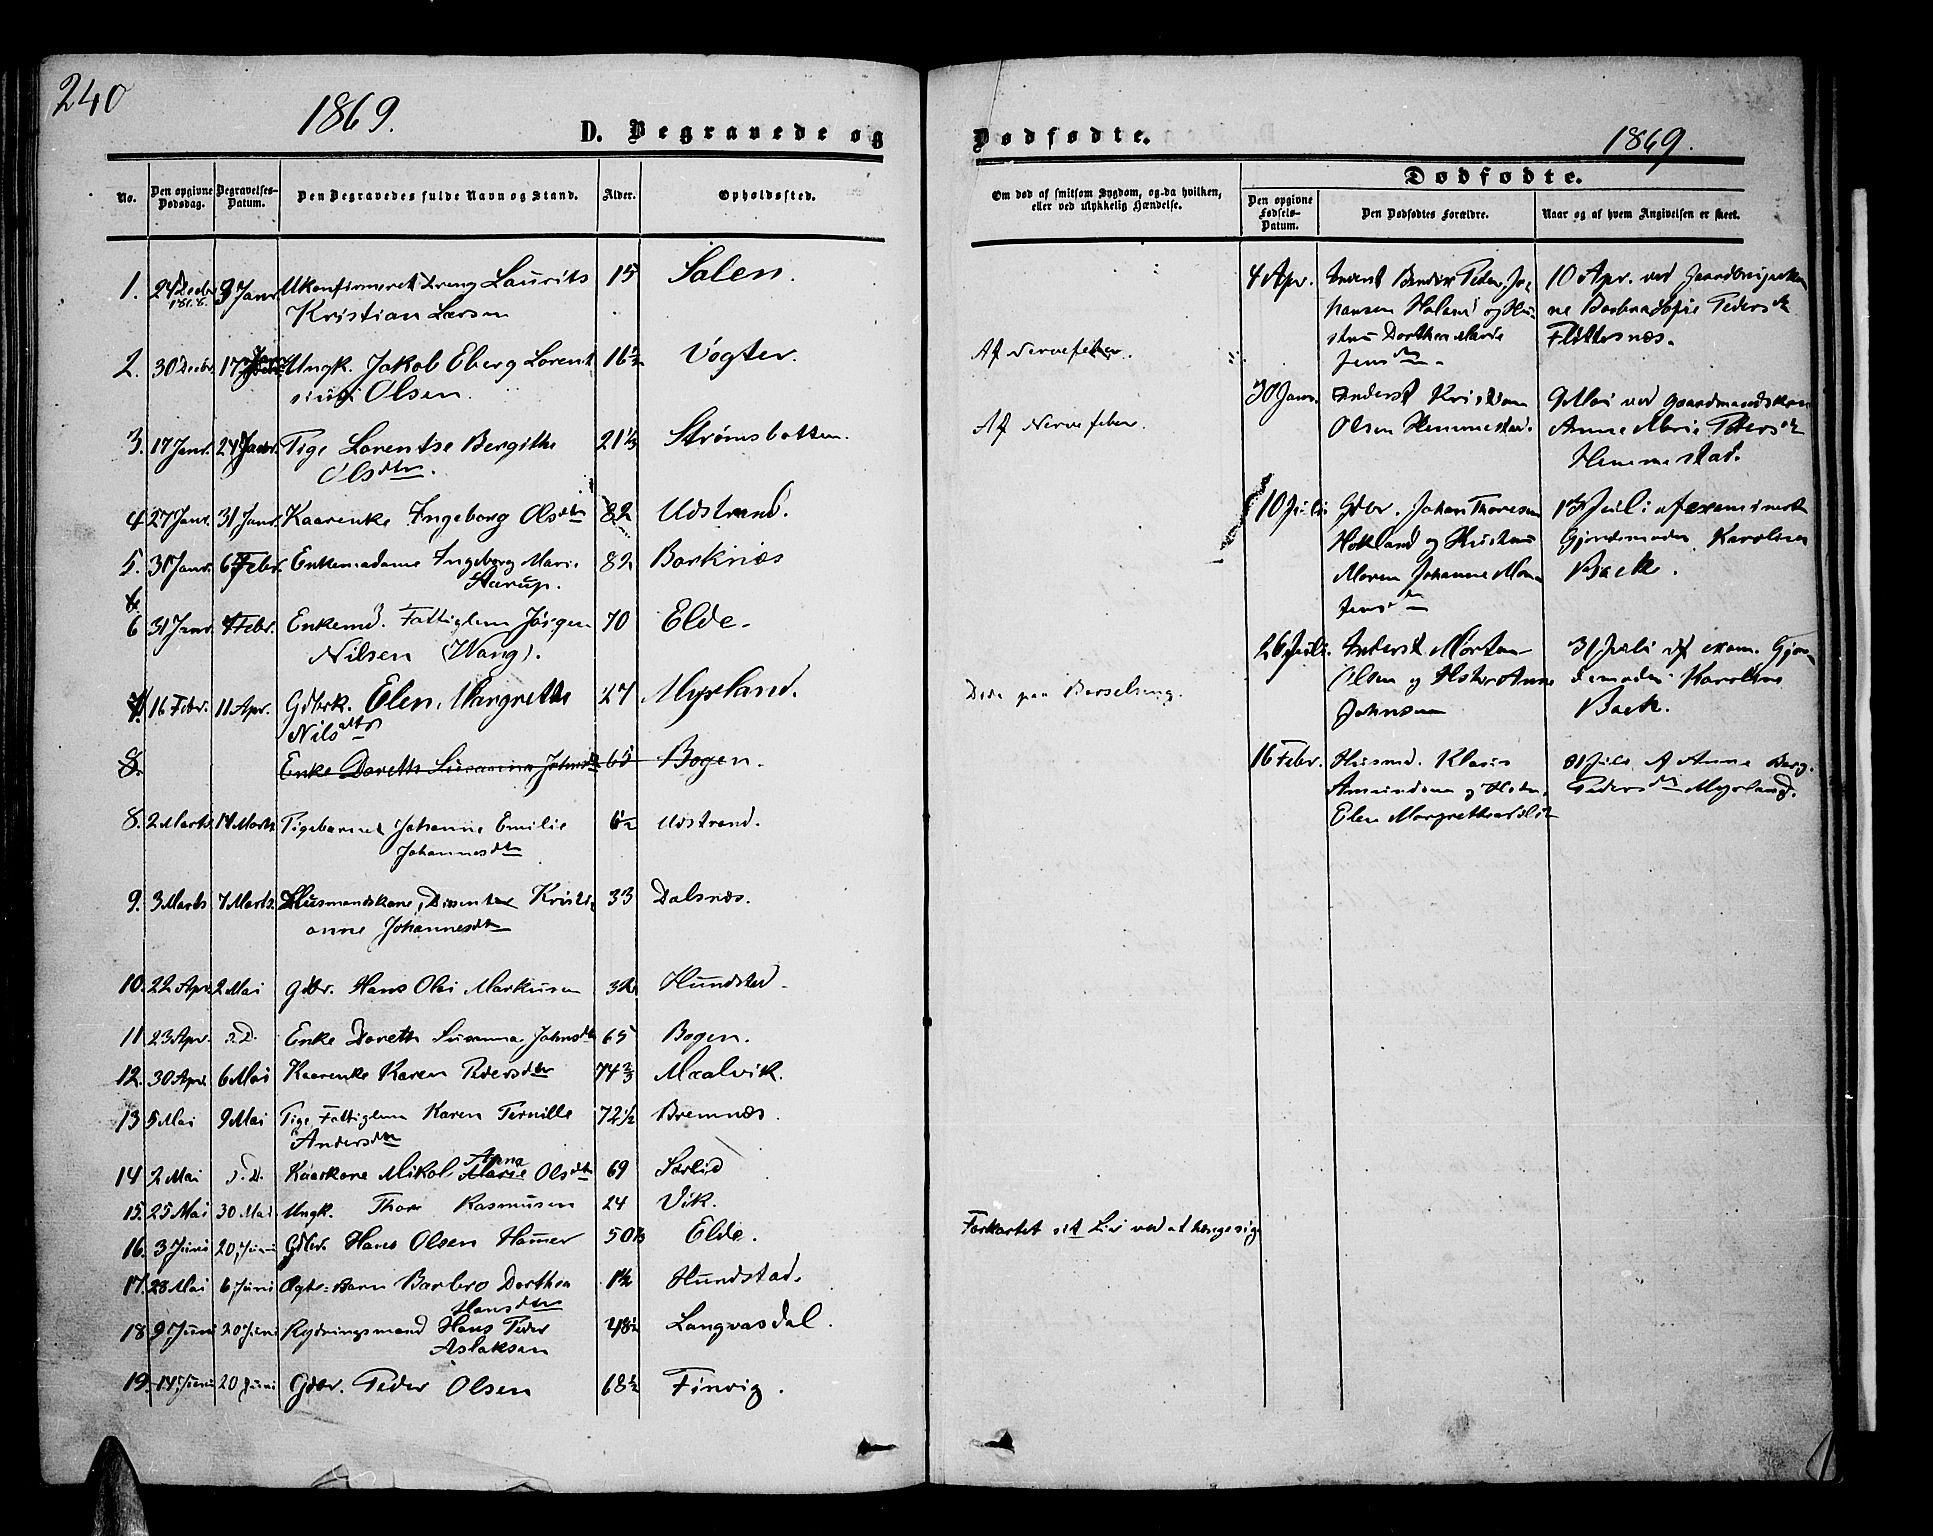 240
1869.
D. Begravede og
Dødfødte.
1869.
No.
Den opgivne Dødsdag.
Begravelses-Datum.
Den Begravedes fulde Navn og Stand.
Alder.
Opholdssted.
Om død af smitsom Sygdom, og da hvilken,
eller ved ulykkelig Hændelse.
Dødfødte.
Den opgivne Fødsels-Datum.
Den Dødfødtes Forældre.
Naar og af hvem Angivelsen er skeet.
1. 24 Decbr 1868. 3 Janr Ukonfirmeret Dreng Laurits 15 Salen.
Kristian Larsen
2. 30 Decbr. 17 Janr Ungk. Jakob Eberg Lorent 16½ Vogter. Af Nervefeber.
sius Olsen.
3. 17 Janr. 24 Janr. Pige Lorentse Bergithe 21⅓ Strømsbotten. Af Nervefeber.
Olsdtr.
4 27 Janr. 31 Janr. Kaarenke Ingeborg Olsdtr 82 Udstrand.
5. 31 Janr. 6 Febr. Enkemadame Ingeborg Marie 82 Borknæs
Aarup.
6 31 Janr. 7 Febr. Enkemd. Fattiglem Jørgen 70 Elde.
Nilsen (Wang).
7. 16 Febr. 11 Apr. Gdbrk. Elen Margrethe 27 Myrland. Døde paa Barselseng.
Nilsdtr
8. Enke Doreth Susanna Johnsdtr 65 Bogen.
8. 2 Marts 14 Marts Pigebarnet Johanne Emilie 6/12 Udstrand.
Johannesdtr
9. 3 Marts 7 Marts. Husmandskone, Dissenter Kristi 33 Dalsnæs.
anne Johannesdtr
10. 22 Apr. 2 Mai Gdbr. Hans Olai Markusen 32 Hundstad.
11. 23 Apr. s.D. Enke Doreth Susanna Johnsdtr 65 Bogen.
12. 30 Apr. 6 Mai Kaarenke Karen Pedersdtr 74⅔ Maalvik.
13 5 Mai 9 Mai Pige Fattiglem Karen Pernille 72½ Bremnæs.
Andersdtr
14 2 Mai s.D. Kaarkone Mikol Anna Marie Olsdtr 69 Sørlid
15. 25 Mai 30 Mai Ungk. Thore Rasmusen 24 Vik.
16. 3 Juni 20 Juni Gdbr. Hans Olsen Hamer 50 Elde. Forkortet sit Liv ved at hænge sig
17. 28 Mai 6 Juni Barn Barbro Dorthea 1½ Hundstad.
Hansdtr
18 9 Juni 20 Juni Rydningsmand Hans Peder 48½ Langvasdal.
Aslaksen
19. 14 Juni 20 Juni Gdbr. Peder Olsen 68½ Finvig.
4 Apr. Inderst Bendix Peder Jo- 10 Apr. ved
hansen Holand og Hu- Pedersdtr
stru Dorthea Marie Flottesnæs.
Jensdtr.
30 Janr. Inderst Kristian 9 Mai ved Gaardmandskone
Olsen Hemmestad. Anne Marie Pedersdtr
Hemmestad.
10 Juli Gdbr. Johan Thoresen 13 Juli af examinerte
Hokland og Hustru Gjordemoder Karoline
Maren Johanne Mon Back.
Jensdtr
26 Juli. Inderst Morten 31 Juli af exam. Gjor-
Olsen og Hstr Anne demoder Karoline
Johnsen Back.
16 Febr. Husmd. Klaus 31 Juli Af Anne Berg.
Amundsen og Hstr. Pedersdtr Myrland.
Elen Margrethe Nilsdtr